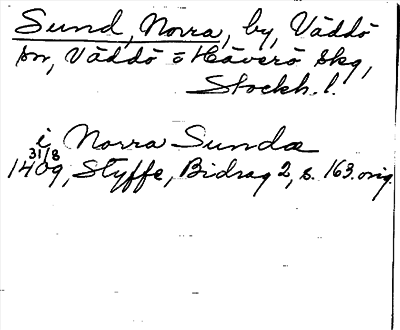 Sund, Norra, by, Väddö
sn, Väddö o Häverö skg,
Stockh. l.
i Norra Sunda
31/8
1409, Styffe, Bidrag 2, s. 163. orig.